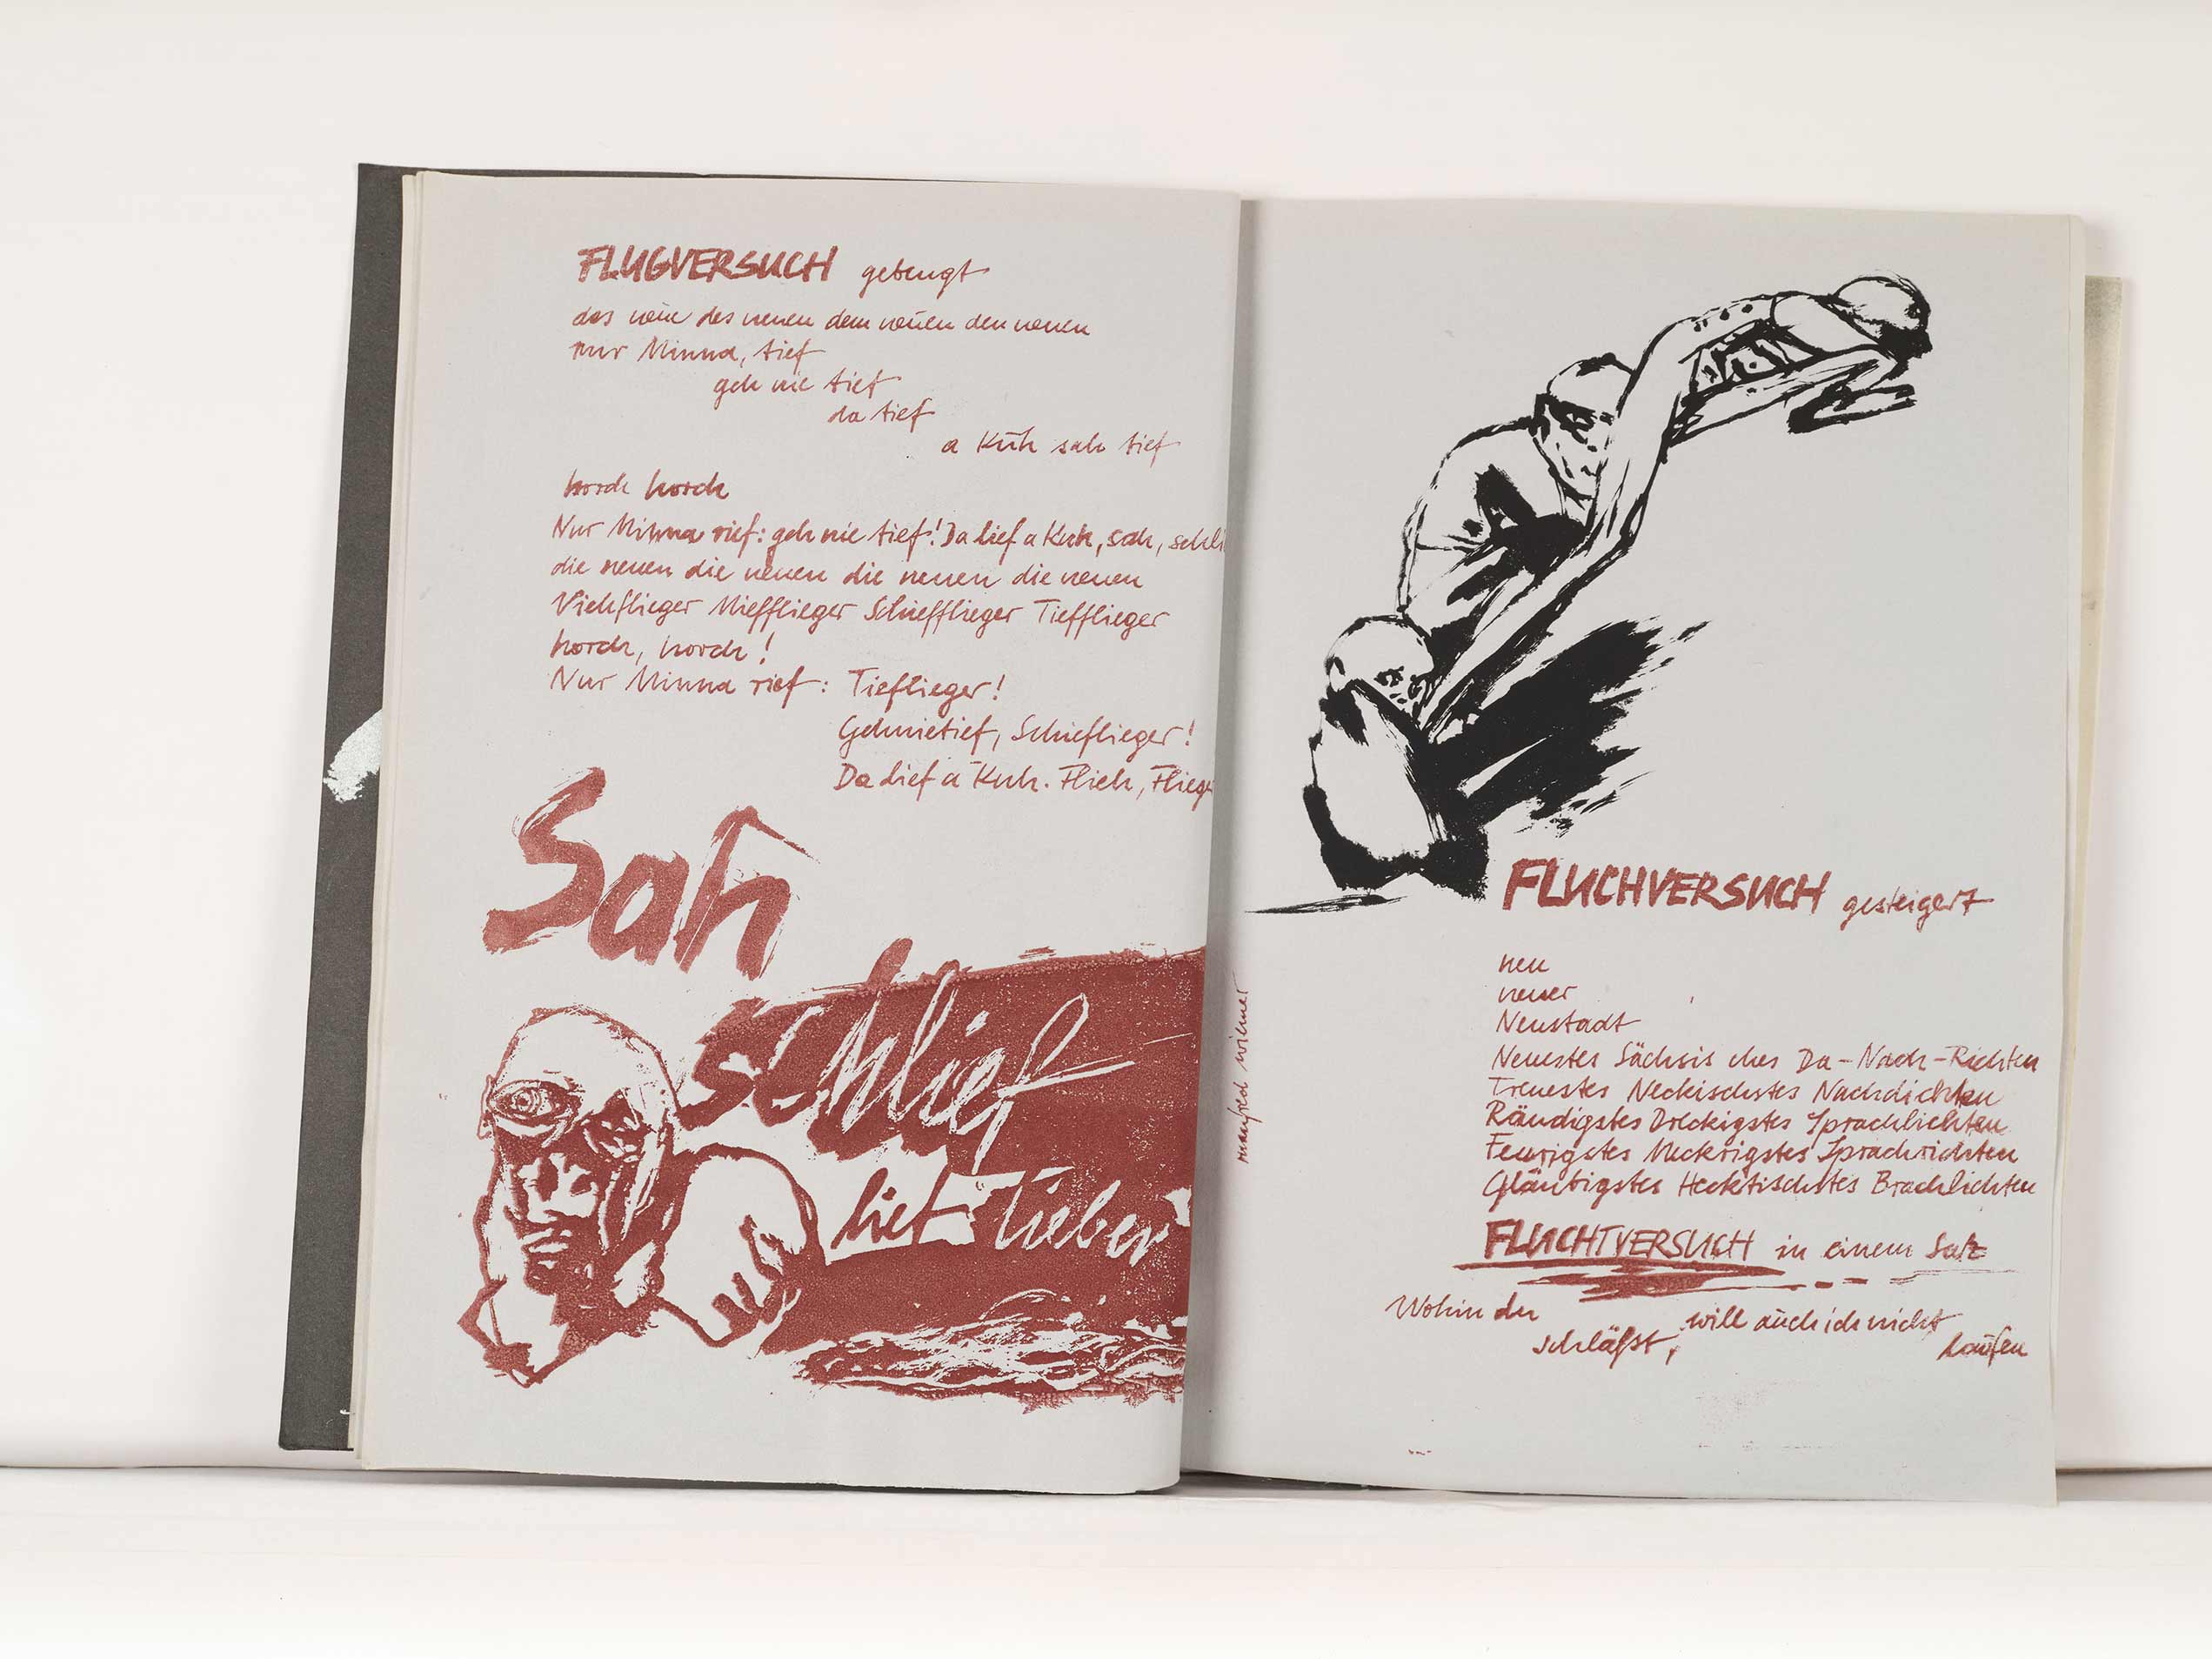 FLUGVERSUCH gebeugt
das neue des neuen dem neuen den neuen
nur Minna, tief
geh nie tief
da tief
a Kuh sah tief
horch horch
Nur Minna rief: geh nie tief! Da lief a Kuh, sah, schli
die neuen die neuen die neuen die neuen
Viehflieger Miefflieger Schiefflieger Tiefflieger
horch, horch!
Nur Minna rief: Tieflieger!
Gehnietief, Schieflieger!
Da lief a Kuh. Flieh, Fliege
Sah
schlief
lief lieber
manfred wiemer
FLUCHVERSUCH gesteigert
neu
neuer
Neustadt
Neuestes Sächsisches Da-Nach-Richten
Treuestes Neckischstes Nachdichten
Räudigstes Dreckigstes Sprachlichten
Feurigstes Meckrigstes Sprachrichten
Gläubigstes Hecktischstes Brachlichten
FLUCHTVERSUCH in einem Satz
Wohin du
schläfst, will auch ich nicht
laufen